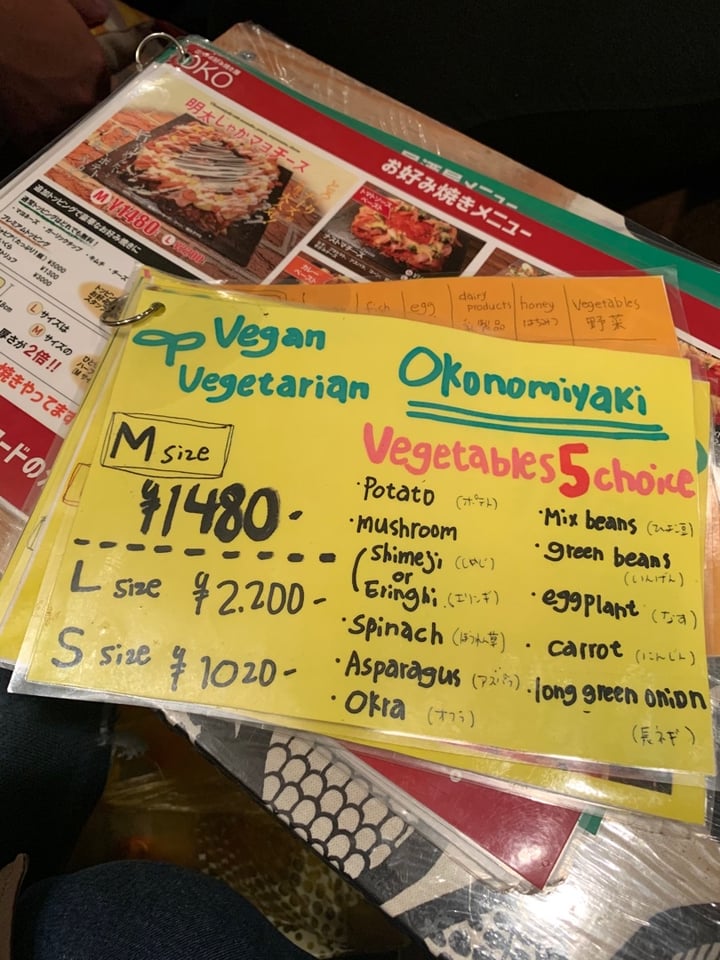 OKO
明太しゃかマヨチーズ
M ¥1480
お好み焼きメニュー
トマトソースベース
ナストマチーズ
カレーベース
追加トッピングで豪華なお好み焼きに
プレミアムトッピング
・キムチ
・チーズ
Lサイズは
Mサイズの
厚さが2倍!!
fish
egg
dairy products
honey はちみつ
Vegetables 野菜
Vegan
Vegetarian
Okonomiyaki
M size
¥1480-
L size ¥2.200-
S size ¥1020-
Vegetables 5 choice
・Potato (ポテト)
・mushroom
(Shimeji (しめじ)
or
Eringhi (エリンギ)
・Spinach (ほうれん草)
・Asparagus (アスパラ)
・Okra (オクラ)
・Mix beans (ひよこ豆)
・green beans
(いんげん)
・eggplant (なす)
・carrot (にんじん)
・long green onion
(長ネギ)